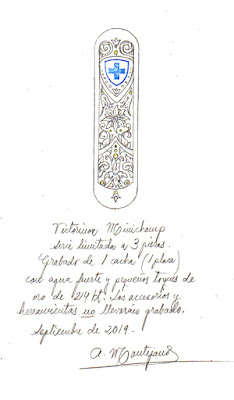 Victorinox Minichamp
Serie limitada a 3 piezas.
Grabado de 1 cacha (1 plaza)
con agua fuerte y pequeños toques de
oro de 24 kt. Los accesorios y
herramientas no llevarán grabado.
Septiembre de 2019.
A. Montejano